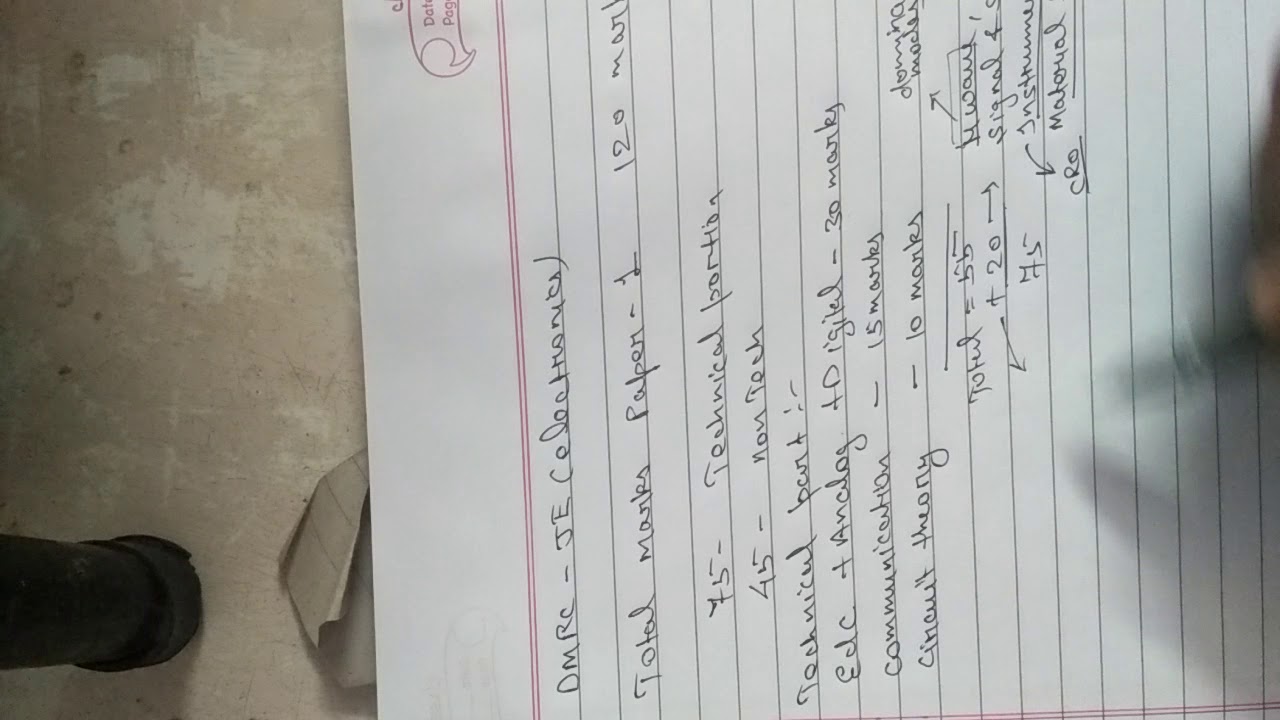 Date
Pag
DMRC - JE (electronics)
Total marks Paper - 1 120 mark
75 - Technical portion
45 - non Tech
Technical part :-
Edc + Analog + Digital - 30 marks
communication - 15 marks
domina
Circuit theory - 10 marks
modes
Total = 55
+ 20 → Signal &
75 Instrume
Material
CRO